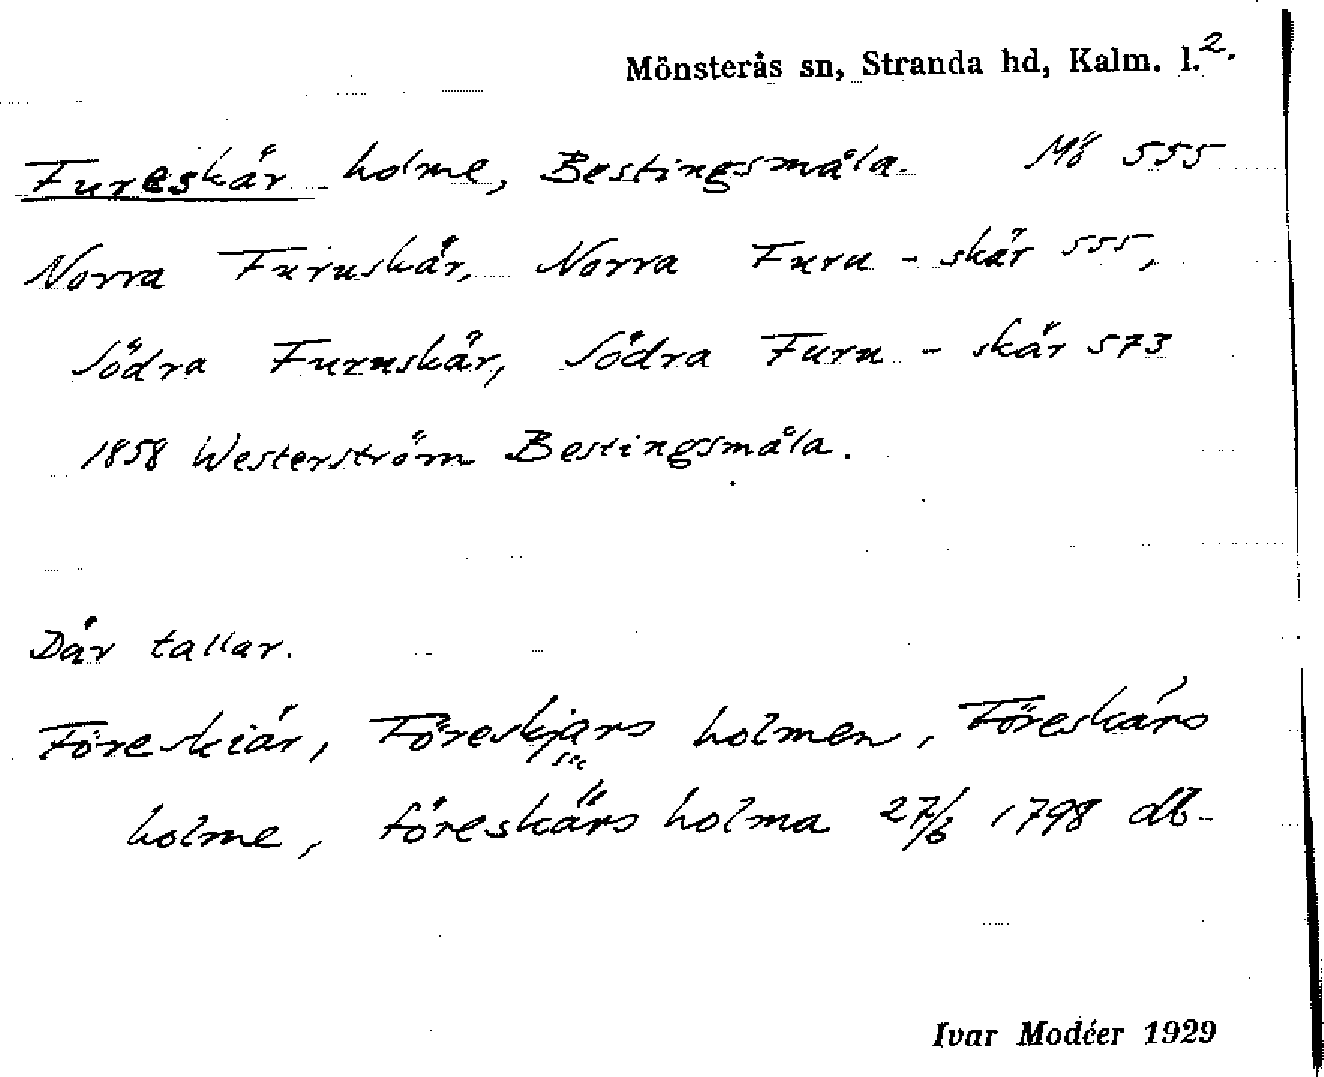 Mönsterås sn, Stranda hd, Kalm. l. 2.
Fureskär holme, Bestingsmåla. Mö 555
Norra Furuskär, Norra Furu - skär 555,
Södra Furuskär, Södra Furu - skär 573
1858 Westerström Bestingsmåla.
Där tallar.
Föreskiär, Föreskjars holmen, Föreskärs
sic
holme, föreskärs holma 27/6 1798 db-
Ivar Modéer 1929